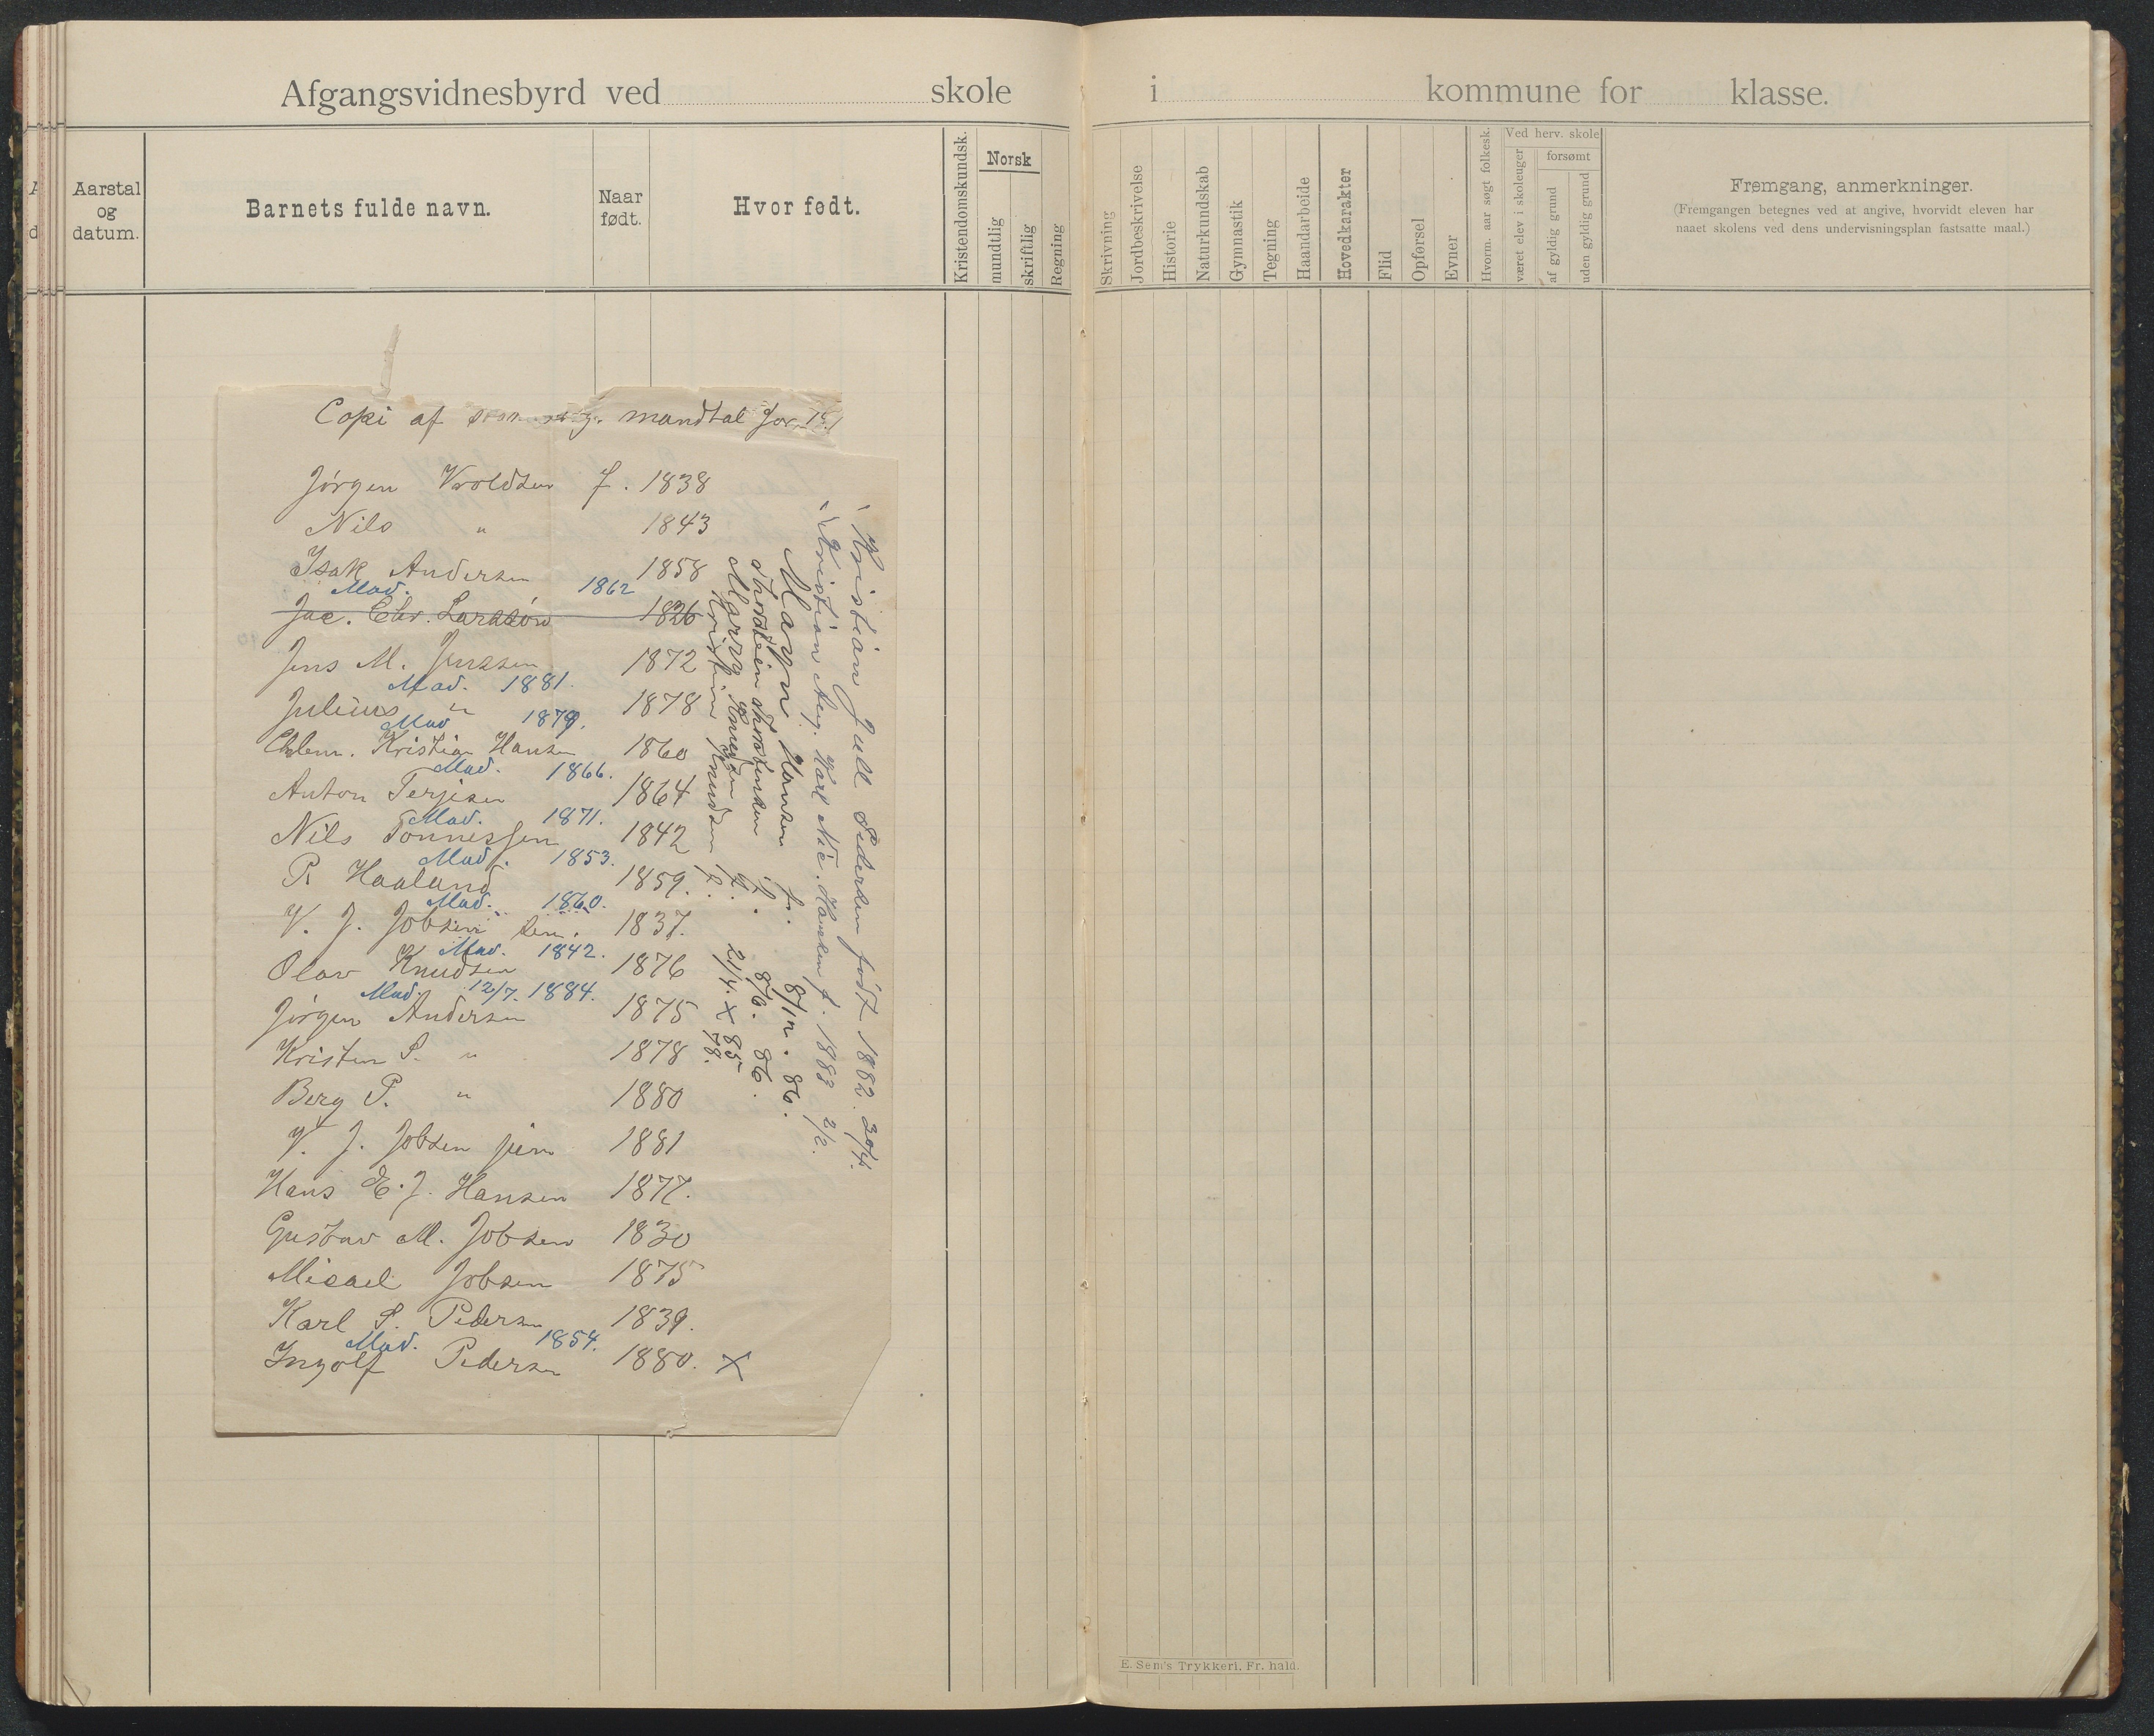 Afgangsvidnesbyrd ved skole i kommune for klasse.
Aarstal og datum.
Barnets fulde navn.
Naar født.
Hvor født.
Kristendomskundsk.
Norsk
mundtlig
skriftlig
Regning
Skrivning
Jordbeskrivelse
Historie
Naturkundskab
Gymnastik
Tegning
Haandarbeide
Hovedkarakter
Flid
Opførsel
Evner
Hvorm. aar søgt folkesk.
Ved herv. skole
været elev i skoleuger
forsømt
af gyldig grund
uden gyldig grund
Fremgang, anmerkninger.
(Fremgangen betegnes ved at angive, hvorvidt eleven har
naaet skolens ved dens undervisningsplan fastsatte maal.)
Copi af mandtal for
Jørgen Vroldsen f. 1838
Nils " 1843
Isak Andersen 1858
Mad. 1862
Jac. Chr. 1826
Jens M. Jenssen 1872
Mad. 1881.
Julius " 1878
Mad 1879.
Clem. Kristian Hansen 1860
Mad. 1866.
Anton Terjesen 1864
Mad. 1871.
Nils Tønnessen 1842
Mad. 1853.
P. Haaland 1859.
Mad. 1860.
V. J. Jobsen sen. 1837.
Mad. 1842.
Olav Knudsen 1876
Mad. 12/7. 1884.
Jørgen Andersen 1875
Kristen S. " 1878
Berg P. " 1880
V. J. Jobsen jun 1881
Hans E. J. Hansen 1877.
Gustav M. Jobsen 1830
Micael Jobsen 1875
Karl S. Pedersen 1839.
Mad. 1854.
Ingolf Pedersen 1880. X
Kristian Juell Pedersen født 1882. 30/4.
Kristian Aug. Karl Nic. Hansen f. 1883 2/2.
Magn Hansen f. 8/12. 86.
Thorstein Thorstensen f. 8/6. 86.
Marry Knudsen f. 21/4. X 85
Kristine Knudsen f. 78.
E. Sem's Trykkeri, Fr. hald.